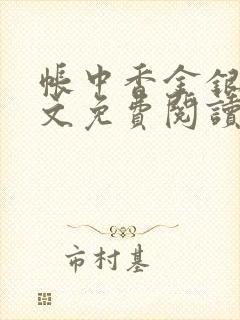 帳中香金銀
文免費閱讀
市村基